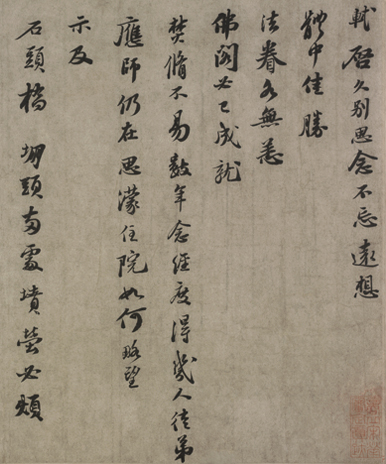 軾啓久别思念不忘遠想
體中佳勝
法眷各無恙
佛閣必已成就
焚脩不易數年念經度得幾人徒弟
應師仍在思濛住院如何略望
示及
石頭橋堋頭兩處墳塋必煩